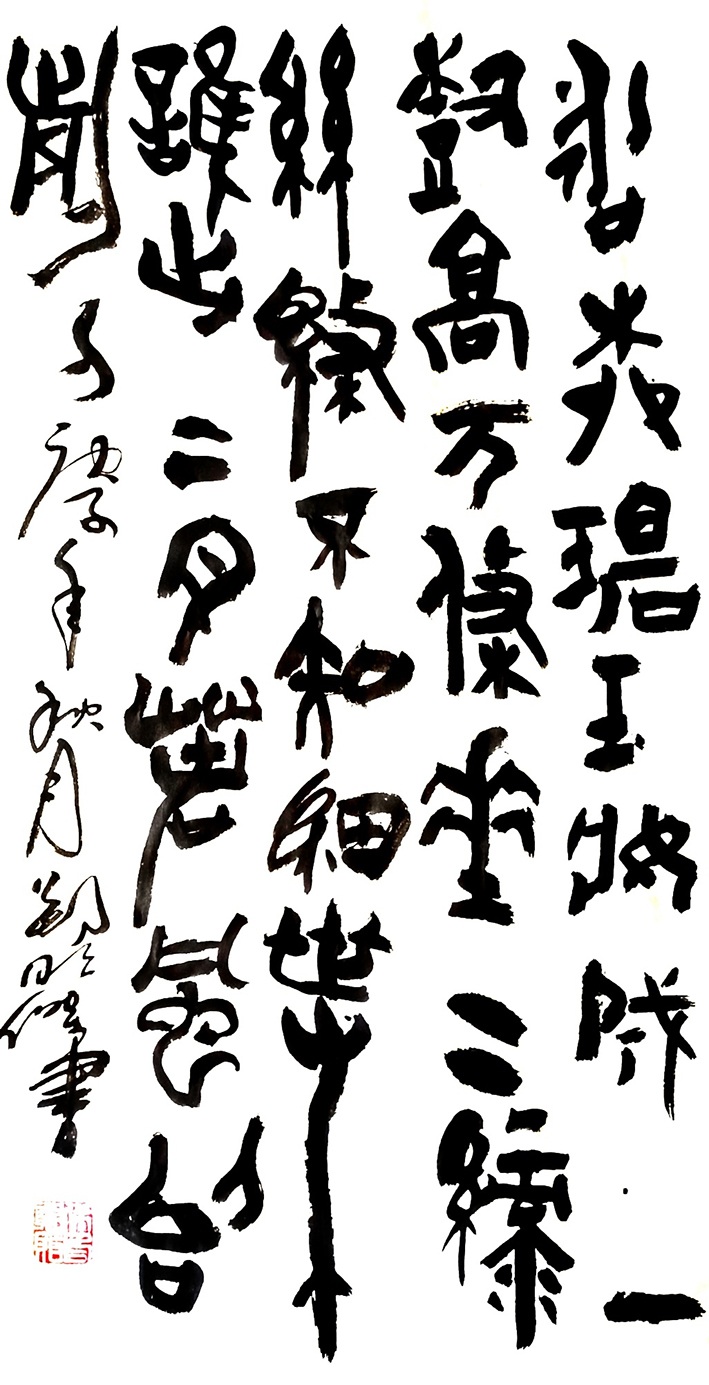 詠柳碧玉妝成一
樹高万條垂下綠
絲絛不知細葉
誰出二月春風似
剪刀 庚子年秋月 書